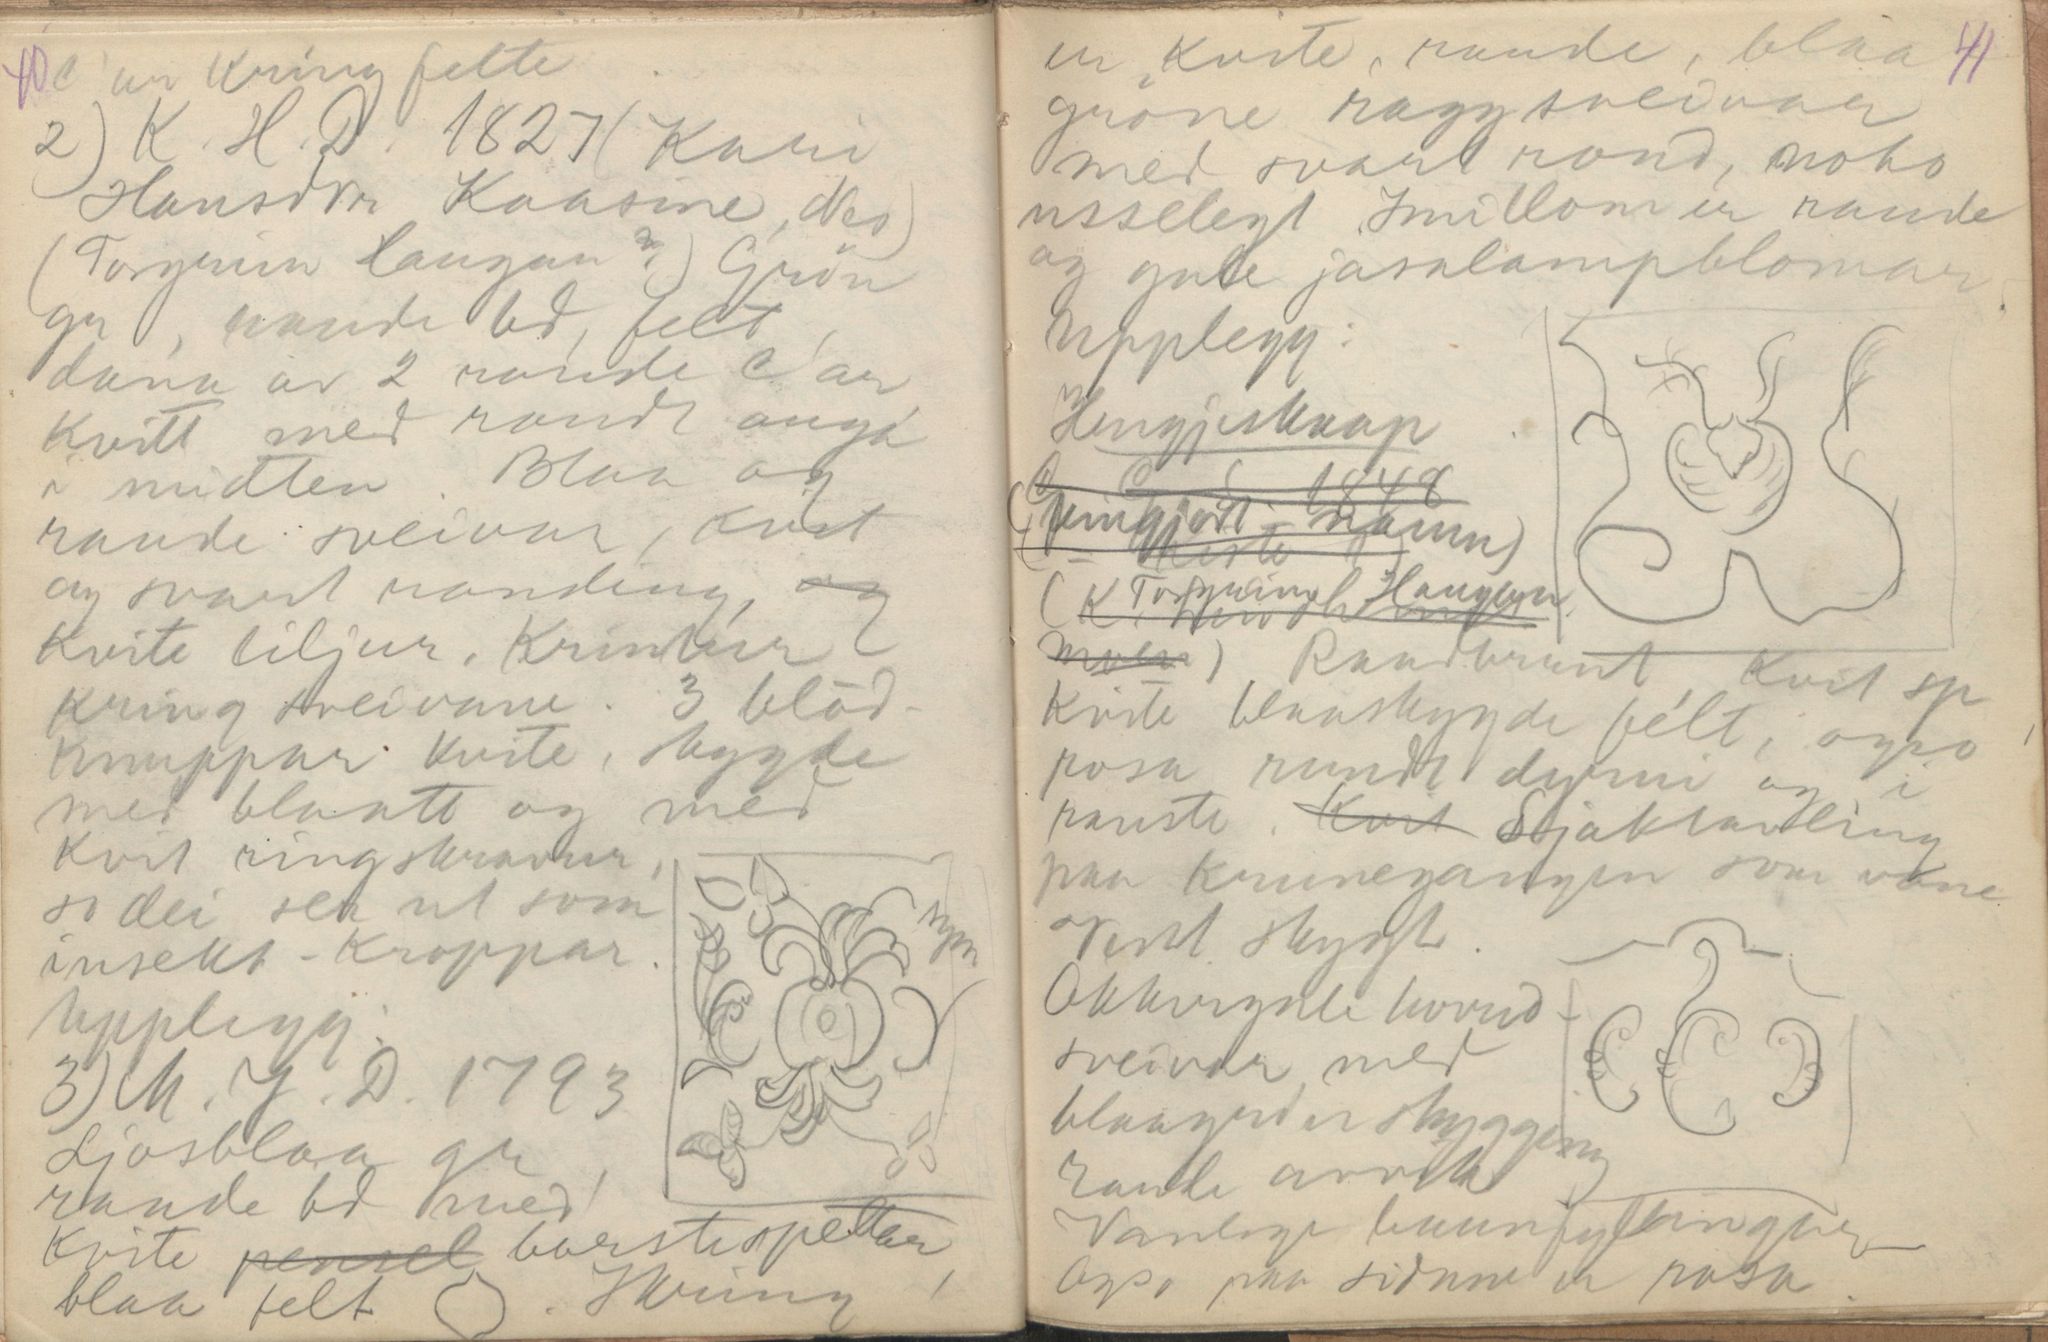 40
c'ar kring felte
2) K. H. D. 1827 (Kari
Hansdtr Kaasine, Nes)
(Torgrim Haugan?) Grön
gr, raude bd, felt,
dana av 2 raude c'ar
Kvitt med raudt auga
i midten. Blaa og
raude sveivar, kvit
og svart randing, og
Kvite liljur. Krimlur
kring sveivane. 3 blöd-
knuppar kvite, skygde
med blaatt og med
kvit ringskravur,
so dei ser ut som
insekt-kroppar.
Upplegg:
3) M. J. D. 1793
Ljosblaa gr,
raude bd med
kvite pensel borstespettar
blaa felt. Ikring
41
er kvite, raude, blaa
gröne raggsveivaer
med svart rand, noko
usselegt. Imillom er raude
og gule jasalampblomar.
Upplegg:
Hengjeskaap
1848
namn)
(K Torgrim Haugen
Moen) Raudbrunt Kvit sp
Kvite blaaskygde felt, ogso
rosa rundt dyrni og i
rauste. Kvit Sjaktavling
paa krunegangen som vore
Okkergule hovud-
sveivar med
skygging
raude
Vanlege
Ogso paa sidune er rosa.